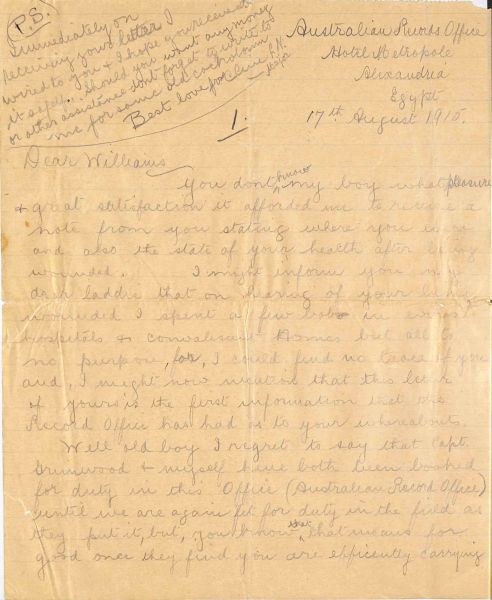 P.S.
Immediately on
receiving your letter I
wired to you & I hope you received
it safely. Should you want any money
or other assistance dont forget to write to
me for some old cockolorum
Best love from
Australian Records Office
Hotel Metropole
Alexandria
Egypt
17th August 1915.
1.
Dear Williams
You dont know my boy what pleasure
& great satisfaction it afforded me to receive a
note from you stating where you
and also the state of your health after being
wounded. I might inform you my
dear laddie that on hearing of your being
wounded I spent a few bob in
hospitals & convalescent Homes but all to
no purpose, for, I could find no trace of you
and, I might now mention that this letter
of yours is the first information that the
Record Office has had as to your whereabouts.
Well old boy I regret to say that Capt.
& myself have both been booked
for duty in this Office (Australian Record Office)
until we are again fit for duty in the field as
they put it, but, you know that that means for
good once they find you are efficiently carrying